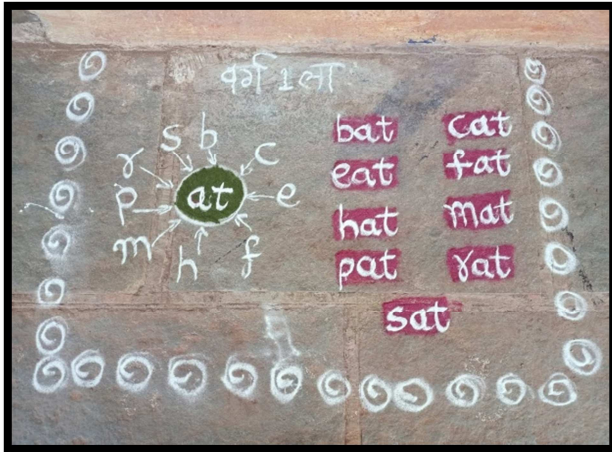 वर्ग 1 ला
s b c
r at e
p
m h f
bat cat
eat fat
hat mat
pat rat
sat